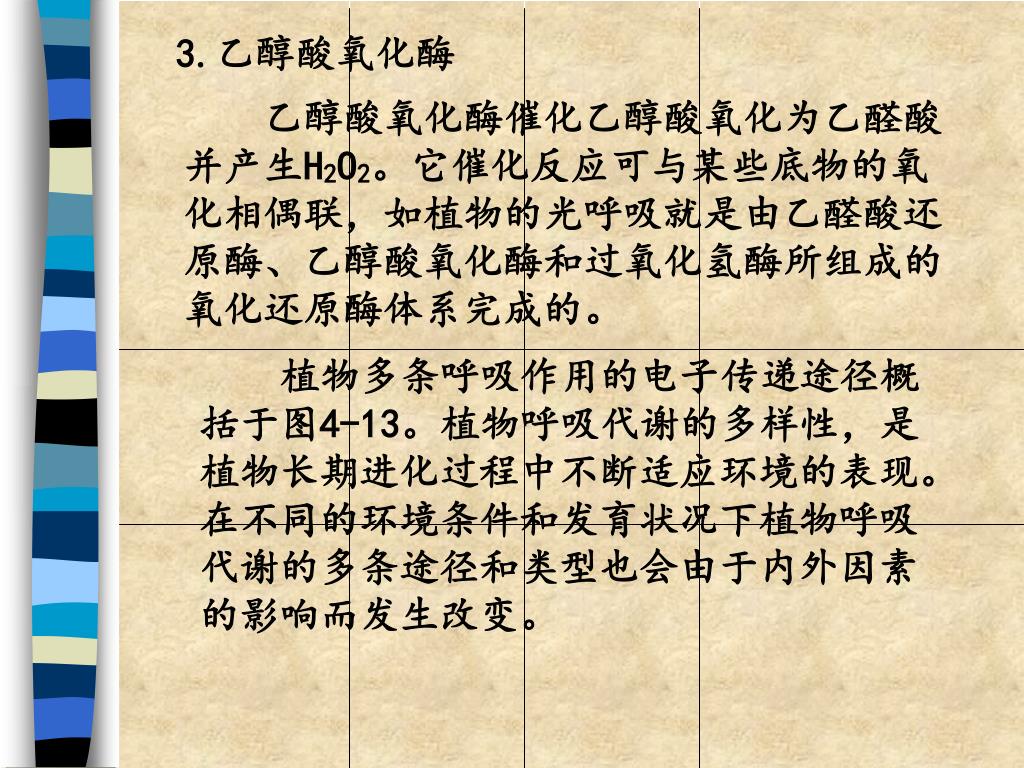 3.乙醇酸氧化酶
乙醇酸氧化酶催化乙醇酸氧化为乙醛酸
并产生H₂O₂。它催化反应可与某些底物的氧
化相偶联，如植物的光呼吸就是由乙醛酸还
原酶、乙醇酸氧化酶和过氧化氢酶所组成的
氧化还原酶体系完成的。
植物多条呼吸作用的电子传递途径概
括于图4-13。植物呼吸代谢的多样性，是
植物长期进化过程中不断适应环境的表现。
在不同的环境条件和发育状况下植物呼吸
代谢的多条途径和类型也会由于内外因素
的影响而发生改变。